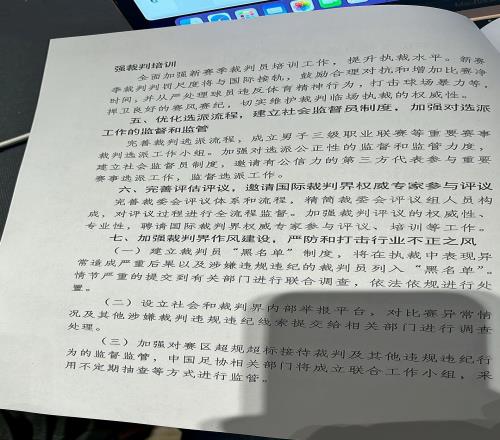 强裁判培训
全面加强新赛季裁判员培训工作，提升执裁水平。新赛
季裁判判罚尺度将与国际接轨，鼓励合理对抗和增加比赛净
时间，并从严处理球员违反体育精神行为，打击球场暴力等，
捍卫良好的赛风赛纪，切实维护裁判临场执裁的权威性。
五、优化选派流程，建立社会监督员制度，加强对选派
工作的监督和监管
完善裁判选派流程，成立男子三级职业联赛等重要赛事
裁判选派工作小组。加强对选派公正性的监督和监管力度，
建立社会监督员制度，邀请有公信力的第三方代表参与重要
赛事选派工作，监督选派工作。
六、完善评估评议，邀请国际裁判界权威专家参与评议
完善裁委会评议体系和流程，精简裁委会评议组人员构
成，对评议过程进行全流程监督。加强裁判评议的权威性、
专业性，聘请国际裁判界权威专家参与评议、培训等工作。
七、加强裁判界作风建设，严防和打击行业不正之风
（一）建立裁判员“黑名单”制度，将在执裁中表现异
常造成严重后果以及涉嫌违规违纪的裁判员列入“黑名单”。
情节严重的提交到有关部门进行联合调查，依法依规进行处
置。
（二）设立社会和裁判界内部举报平台，对比赛异常情
况及其他涉嫌裁判违规违纪线索提交给相关部门进行调查
处理。
（三）加强对赛区超规超标接待裁判及其他违规违纪行
为的监督监管，中国足协相关部门将成立联合工作小组，采
用不定期抽查等方式进行监管。